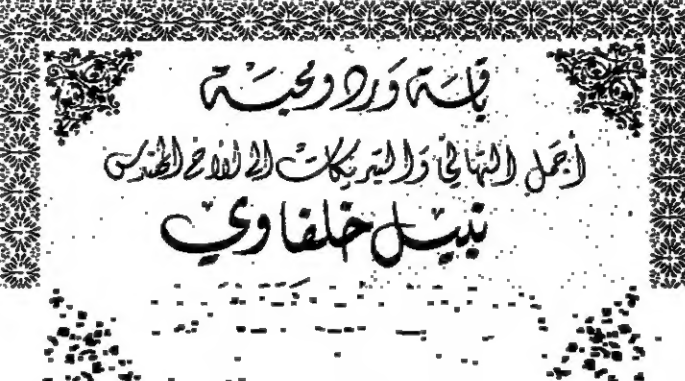 باقة ورد ومحبة
أجمل التهاني والتبريكات إلى الأخ المهندس
نبيل خلفاوي